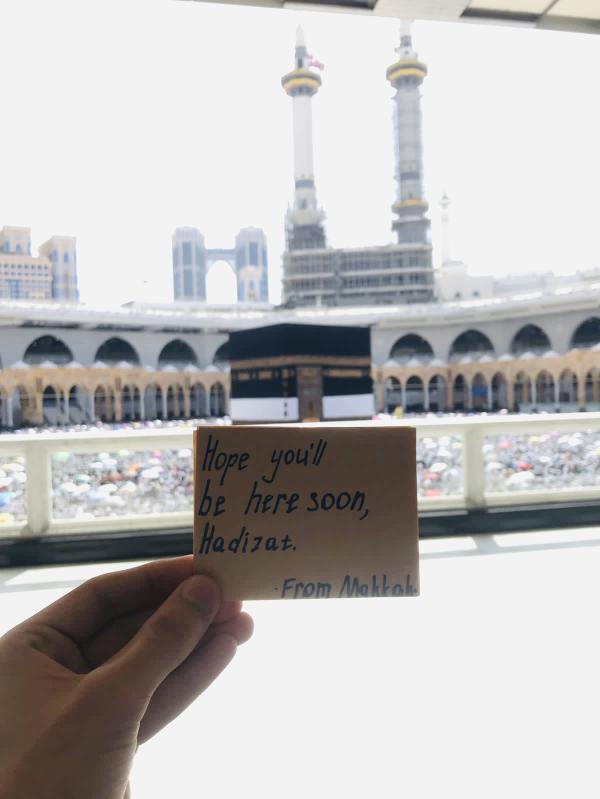 Hope you'll
be here soon,
Hadizat.
-From Makkah.